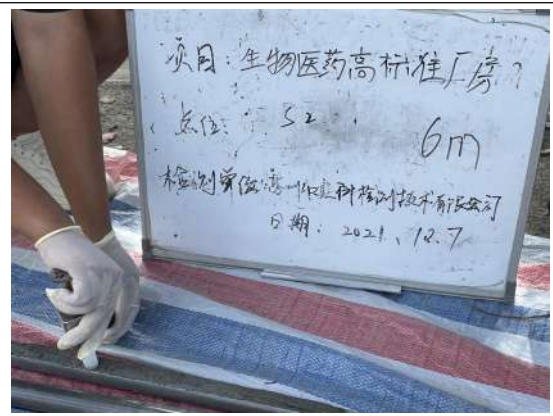 项目:生物医药高标准厂房
点位: S2 6m
检测单位:  检测技术有限公司
日期: 2021.12.7